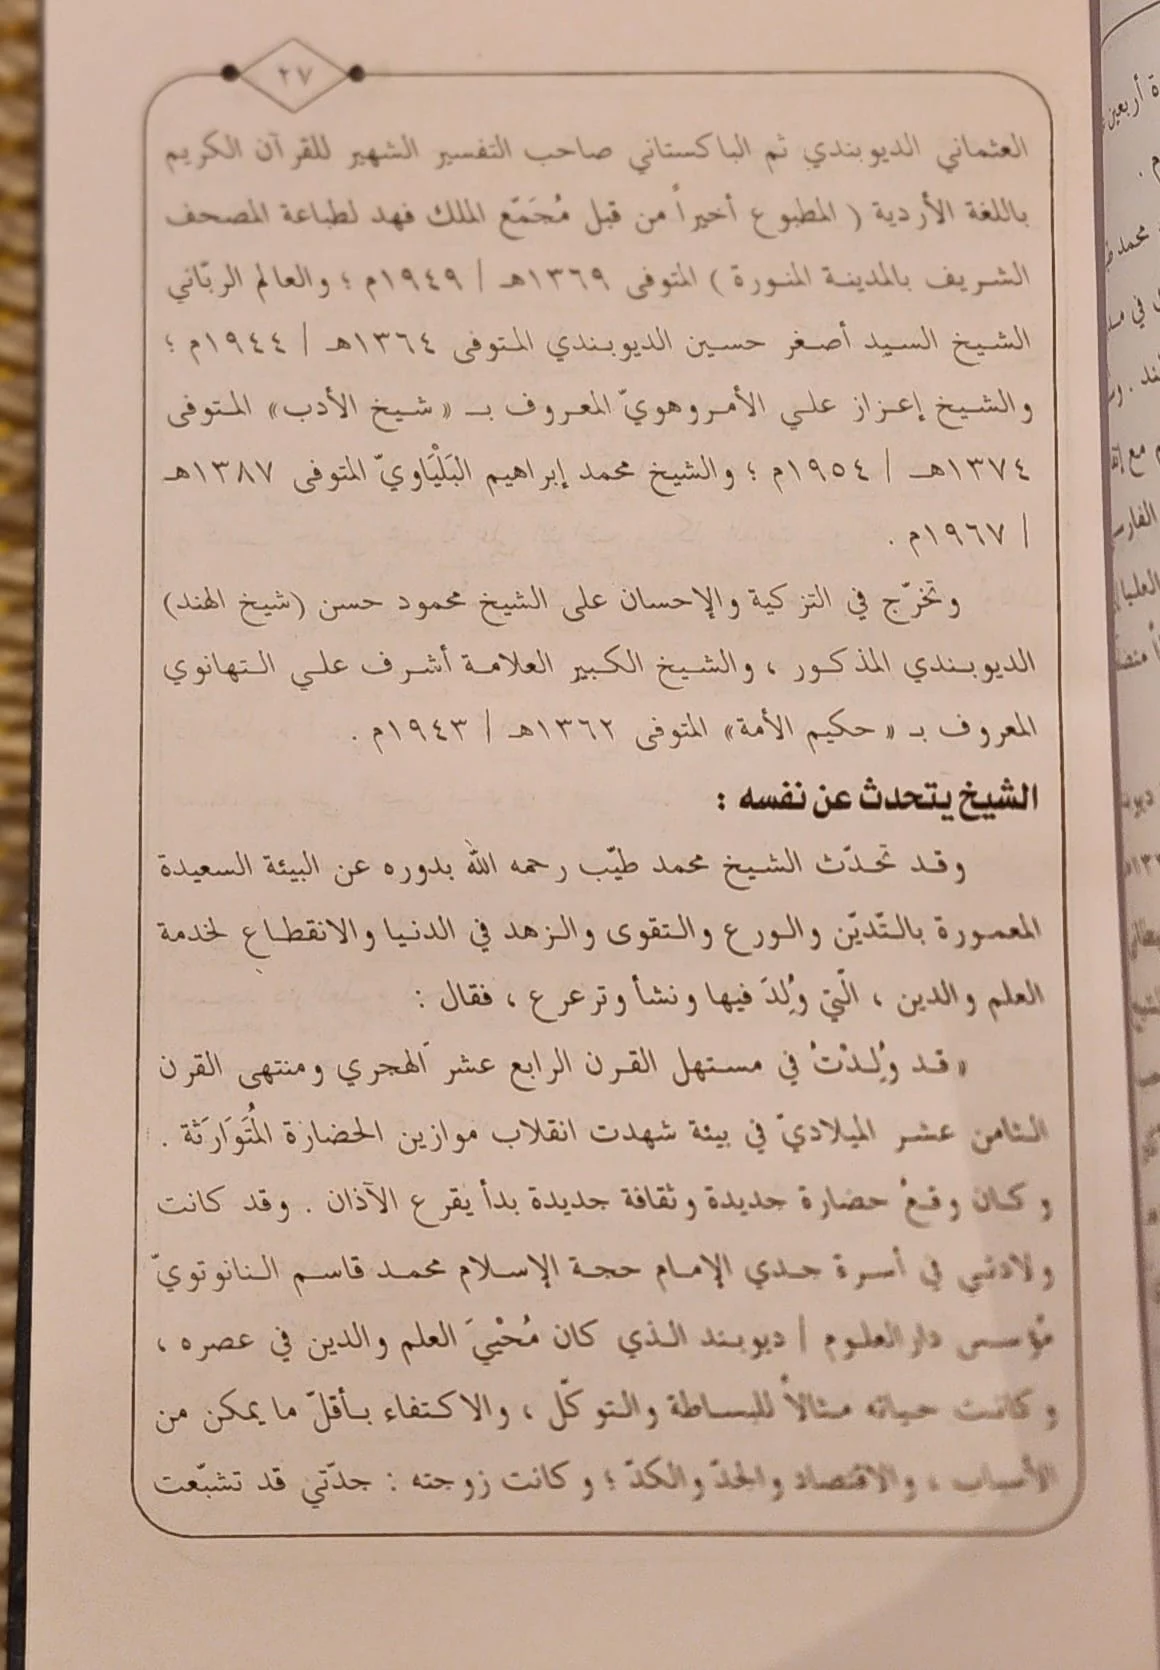 ٢٧
العثماني الديوبندي ثم الباكستاني صاحب التفسير الشهير للقرآن الكريم
باللغة الأردية ( المطبوع أخيراً من قبل مُجَمّع الملك فهد لطباعة المصحف
الشريف بالمدينة المنورة ) المتوفى ١٣٦٩هـ / ١٩٤٩م ؛ والعالم الربّاني
الشيخ السيد أصغر حسين الديوبندي المتوفى ١٣٦٤هـ / ١٩٤٤م ؛
والشيخ إعزاز علي الأمروهويّ المعروف بـ « شيخ الأدب» المتوفى
١٣٧٤هـ / ١٩٥٤م ؛ والشيخ محمد إبراهيم البَلْيَاويّ المتوفى ١٣٨٧هـ
/ ١٩٦٧م .
وتخرّج في التزكية والإحسان على الشيخ محمود حسن (شيخ الهند)
الديوبندي المذكور ، والشيخ الكبير العلامة أشرف علي التهانوي
المعروف بـ « حكيم الأمة» المتوفى ١٣٦٢هـ / ١٩٤٣م .
الشيخ يتحدث عن نفسه :
وقد تحدّث الشيخ محمد طيّب رحمه الله بدوره عن البيئة السعيدة
المعمورة بالتّديّن والورع والتقوى والزهد في الدنيا والانقطاع لخدمة
العلم والدين ، الّتي وُلِدَ فيها ونشأ وترعرع ، فقال :
« قد وُلِدْتُ في مستهل القرن الرابع عشر الهجري ومنتهى القرن
الثامن عشر الميلاديّ في بيئة شهدت انقلاب موازين الحضارة المُتَوَارَثة .
وكان وقعُ حضارة جديدة وثقافة جديدة بدأ يقرع الآذان . وقد كانت
ولادتي في أسرة جدي الإمام حجة الإسلام محمد قاسم النانوتويّ
مؤسس دارالعلوم / ديوبند الذي كان مُحْيِيَ العلم والدين في عصره ،
وكانت حياته مثالاً للبساطة والتوكّل ، والاكتفاء بأقلّ ما يمكن من
الأسباب ، والاقتصاد والجدّ والكدّ ؛ وكانت زوجته : جدّتي قد تشبّعت